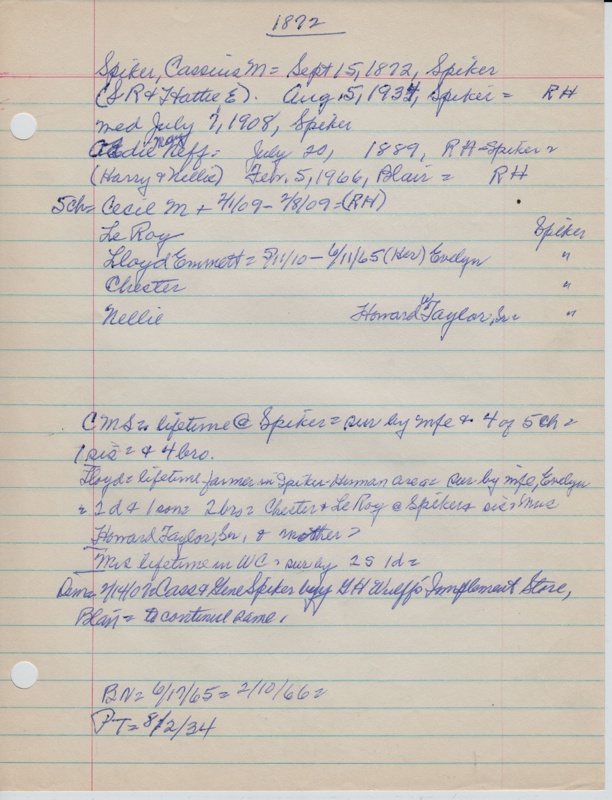 1872
Spiker, Cassius M = Sept 15, 1872, Spiker
(S R & Hattie E). Aug. 5, 1934, Spiker = RH
med July 7, 1908, Spiker
Neff = July 20, 1889, RH-Spiker =
(Harry & Nellie) Feb. 5, 1966, Blair = RH
5ch = Cecil M + 2/1/09 - 2/8/09 = (RH)
Le Roy Spiker
Lloyd Emmett = 9/11/10 - 6/11/65 (Her) Evelyn "
Chester "
Nellie Howard Taylor, Sr = "
CMS = lifetime @ Spiker = sur by wife & 4 of 5 ch =
1 sis = & 4 bro.
Lloyd = lifetime farmer in Spiker-Herman area = sur by wife, Evelyn
= 2 d & 1 son = 2 bro = Chester & Le Roy @ Spiker & sis = Mrs
Howard Taylor, Sr, & mother =
Mrs lifetime in WC = sur by 2 S 1 d =
2/14/07 = Cass & Gene Spiker buy G H Wulff's Implement Store,
Blair = to continue same.
BN = 6/17/65 = 2/10/66 =
PT = 8/2/34